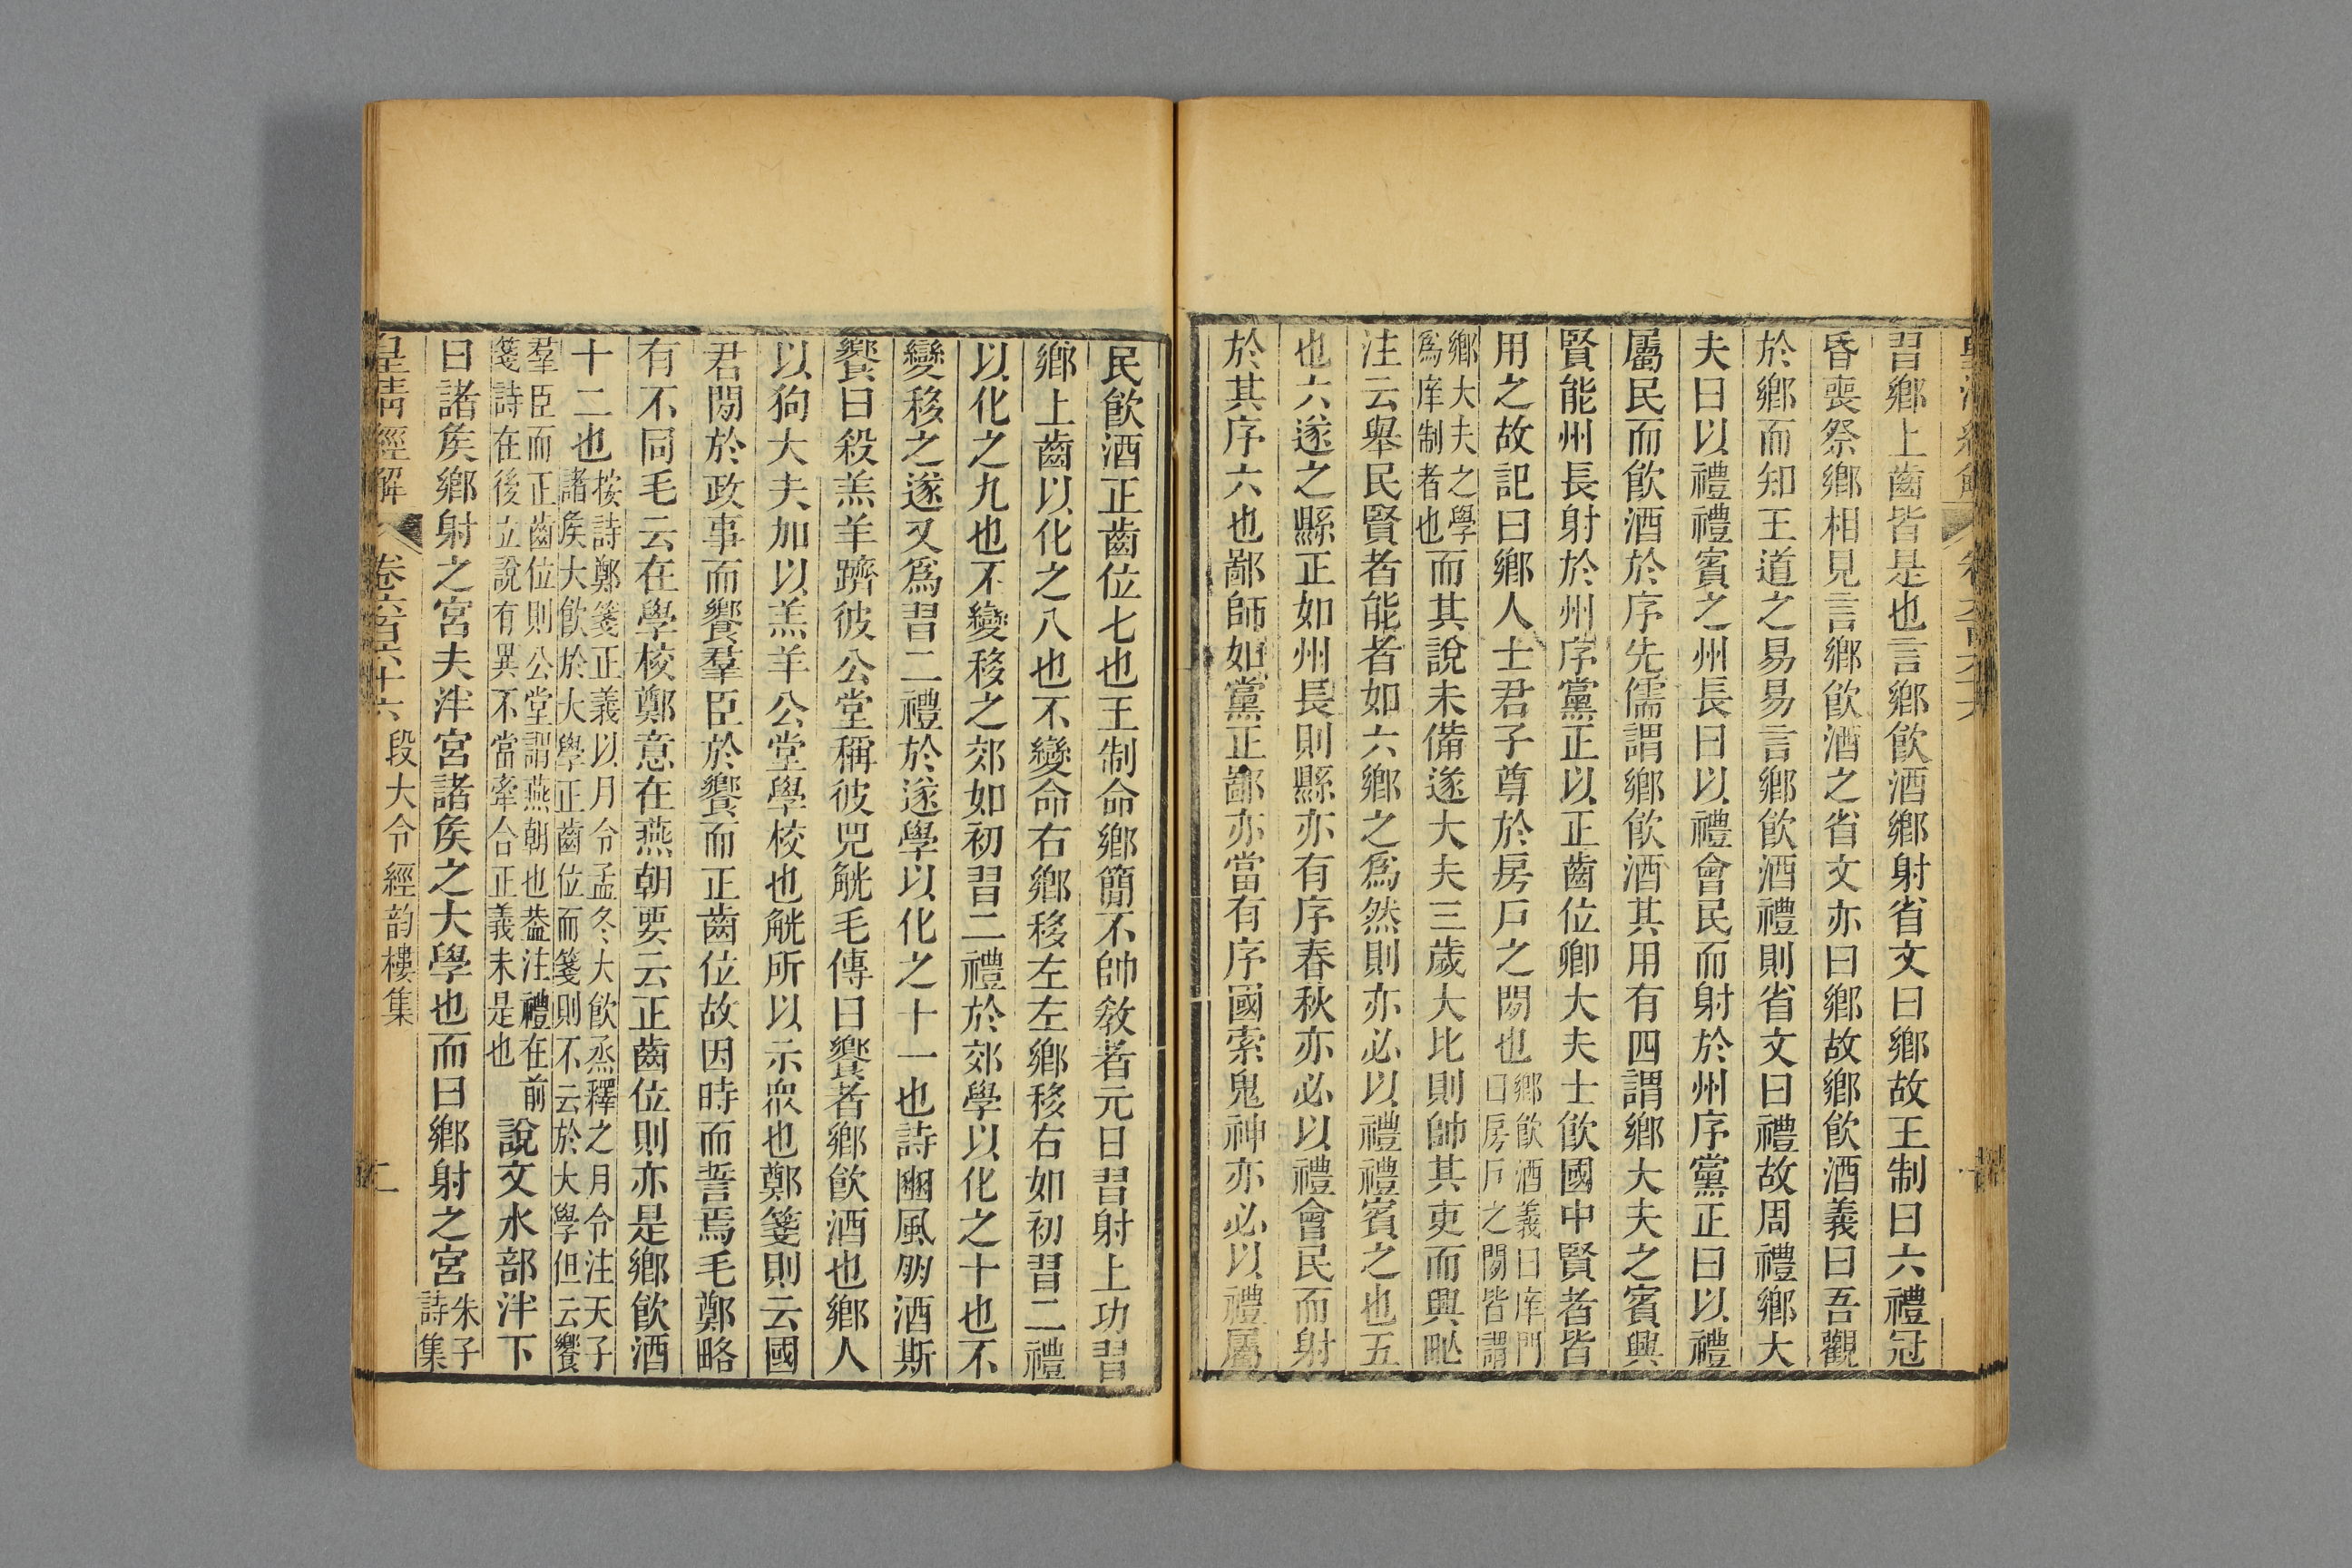 習鄉上齒皆是也言鄉飮酒鄉射省文曰鄉故王制曰六禮冠
昏喪祭鄉相見言鄉飮酒之省文亦曰鄉故鄉飮酒義曰吾觀
於鄉而知王道之易易言鄉飮酒禮則省文曰禮故周禮鄉大
夫曰以禮禮賓之州長曰以禮會民而射於州序黨正曰以禮
屬民而飮酒於序先儒謂鄉飮酒其用有四謂鄉大夫之賓興
賢能州長射於州序黨正以正齒位卿大夫士飮國中賢者皆
用之故記曰鄉人士君子尊於房戶之閒也鄉飮酒義曰庠門
曰房戶之閒皆謂
鄉大夫之學
爲庠制者也而其說未備遂大夫三歲大比則帥其吏而興甿
注云舉民賢者能者如六鄉之爲然則亦必以禮禮賓之也五
也六遂之縣正如州長則縣亦有序春秋亦必以禮會民而射
於其序六也鄙師如黨正鄙亦當有序國索鬼神亦必以禮屬
民飮酒正齒位七也王制命鄉簡不帥敎者元日習射上功習
鄉上齒以化之八也不變命右鄉移左左鄉移右如初習二禮
以化之九也不變移之郊如初習二禮於郊學以化之十也不
變移之遂又爲習二禮於遂學以化之十一也詩豳風朋酒斯
饗曰殺羔羊躋彼公堂稱彼兕觥毛傳曰饗者鄉飮酒也鄉人
以狗大夫加以羔羊公堂學校也觥所以示衆也鄭箋則云國
君閒於政事而饗羣臣於饗而正齒位故因時而誓焉毛鄭略
有不同毛云在學校鄭意在燕朝要云正齒位則亦是鄉飮酒
十二也按詩鄭箋正義以月令孟冬大飮烝釋之月令注天子
諸矦大飮於大學正齒位而箋則不云於大學但云饗
羣臣而正齒位則公堂謂燕朝也葢注禮在前
箋詩在後立說有異不當牽合正義未是也說文水部泮下
曰諸矦鄉射之宮夫泮宮諸矦之大學也而曰鄉射之宮朱子
詩集
皇淸經解 卷六百六十六 段大令經韵樓集 二